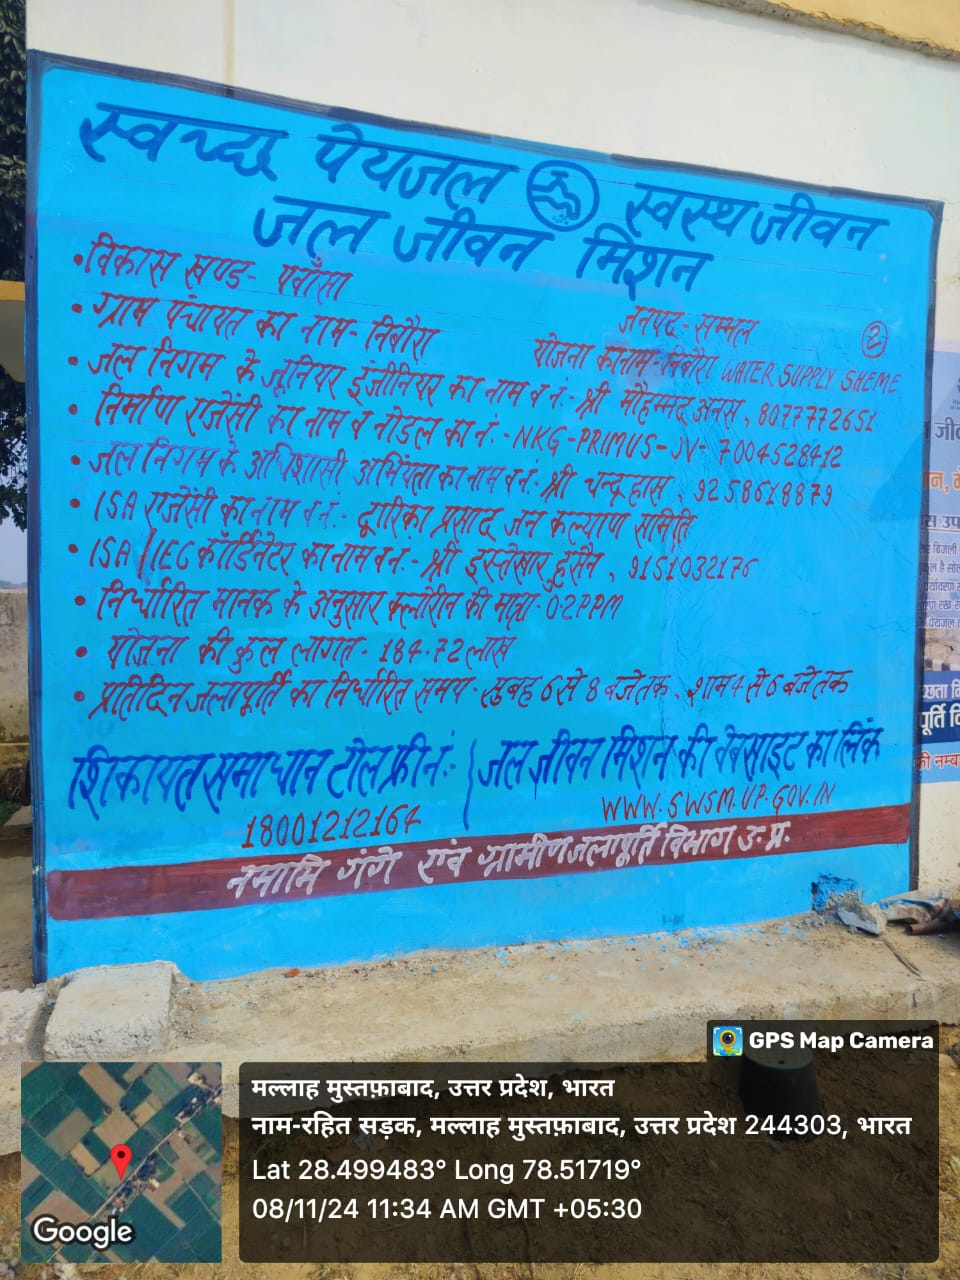 स्वच्छ पेयजल स्वस्थ जीवन
जल जीवन मिशन
•विकास खण्ड- पवाँसा
जनपद - सम्भल
• ग्राम पंचायत का नाम- निबौरा
योजना का नाम- निबौरा WATER SUPPLY SHEME
2
• जल निगम के जूनियर इंजीनियर का नाम व नं:- श्री मौहम्मद अनस, 8077772651
• निर्माण एजेंसी का नाम व नोडल का नं:- NKG-PRIMUS-JV- 7004528412
• जल निगम के अधिशासी अभियंता का नाम व नं:- श्री चन्द्रहास, 9258618879
• ISA एजेंसी का नाम व नं:- द्वारिका प्रसाद जन कल्याण समिति
• ISA/IEC कॉर्डिनेटर का नाम व नं:- श्री इस्तेखार हुसैन, 9151032176
• निर्धारित मानक के अनुसार क्लोरीन की मात्रा- 0.2PPM
• योजना की कुल लागत- 184.72 लाख
• प्रतिदिन जलापूर्ति का निर्धारित समय- सुबह 6 से 8 बजे तक, शाम 4 से 6 बजे तक
शिकायत समाधान टोल फ्री नं:-
18001212164
जल जीवन मिशन की वेबसाइट का लिंक
WWW.SWSM.UP.GOV.IN
नमामि गंगे एवं ग्रामीण जलापूर्ति विभाग उ.प्र.
GPS Map Camera
मल्लाह मुस्तफ़ाबाद, उत्तर प्रदेश, भारत
नाम-रहित सड़क, मल्लाह मुस्तफ़ाबाद, उत्तर प्रदेश 244303, भारत
Lat 28.499483° Long 78.51719°
08/11/24 11:34 AM GMT +05:30
Google